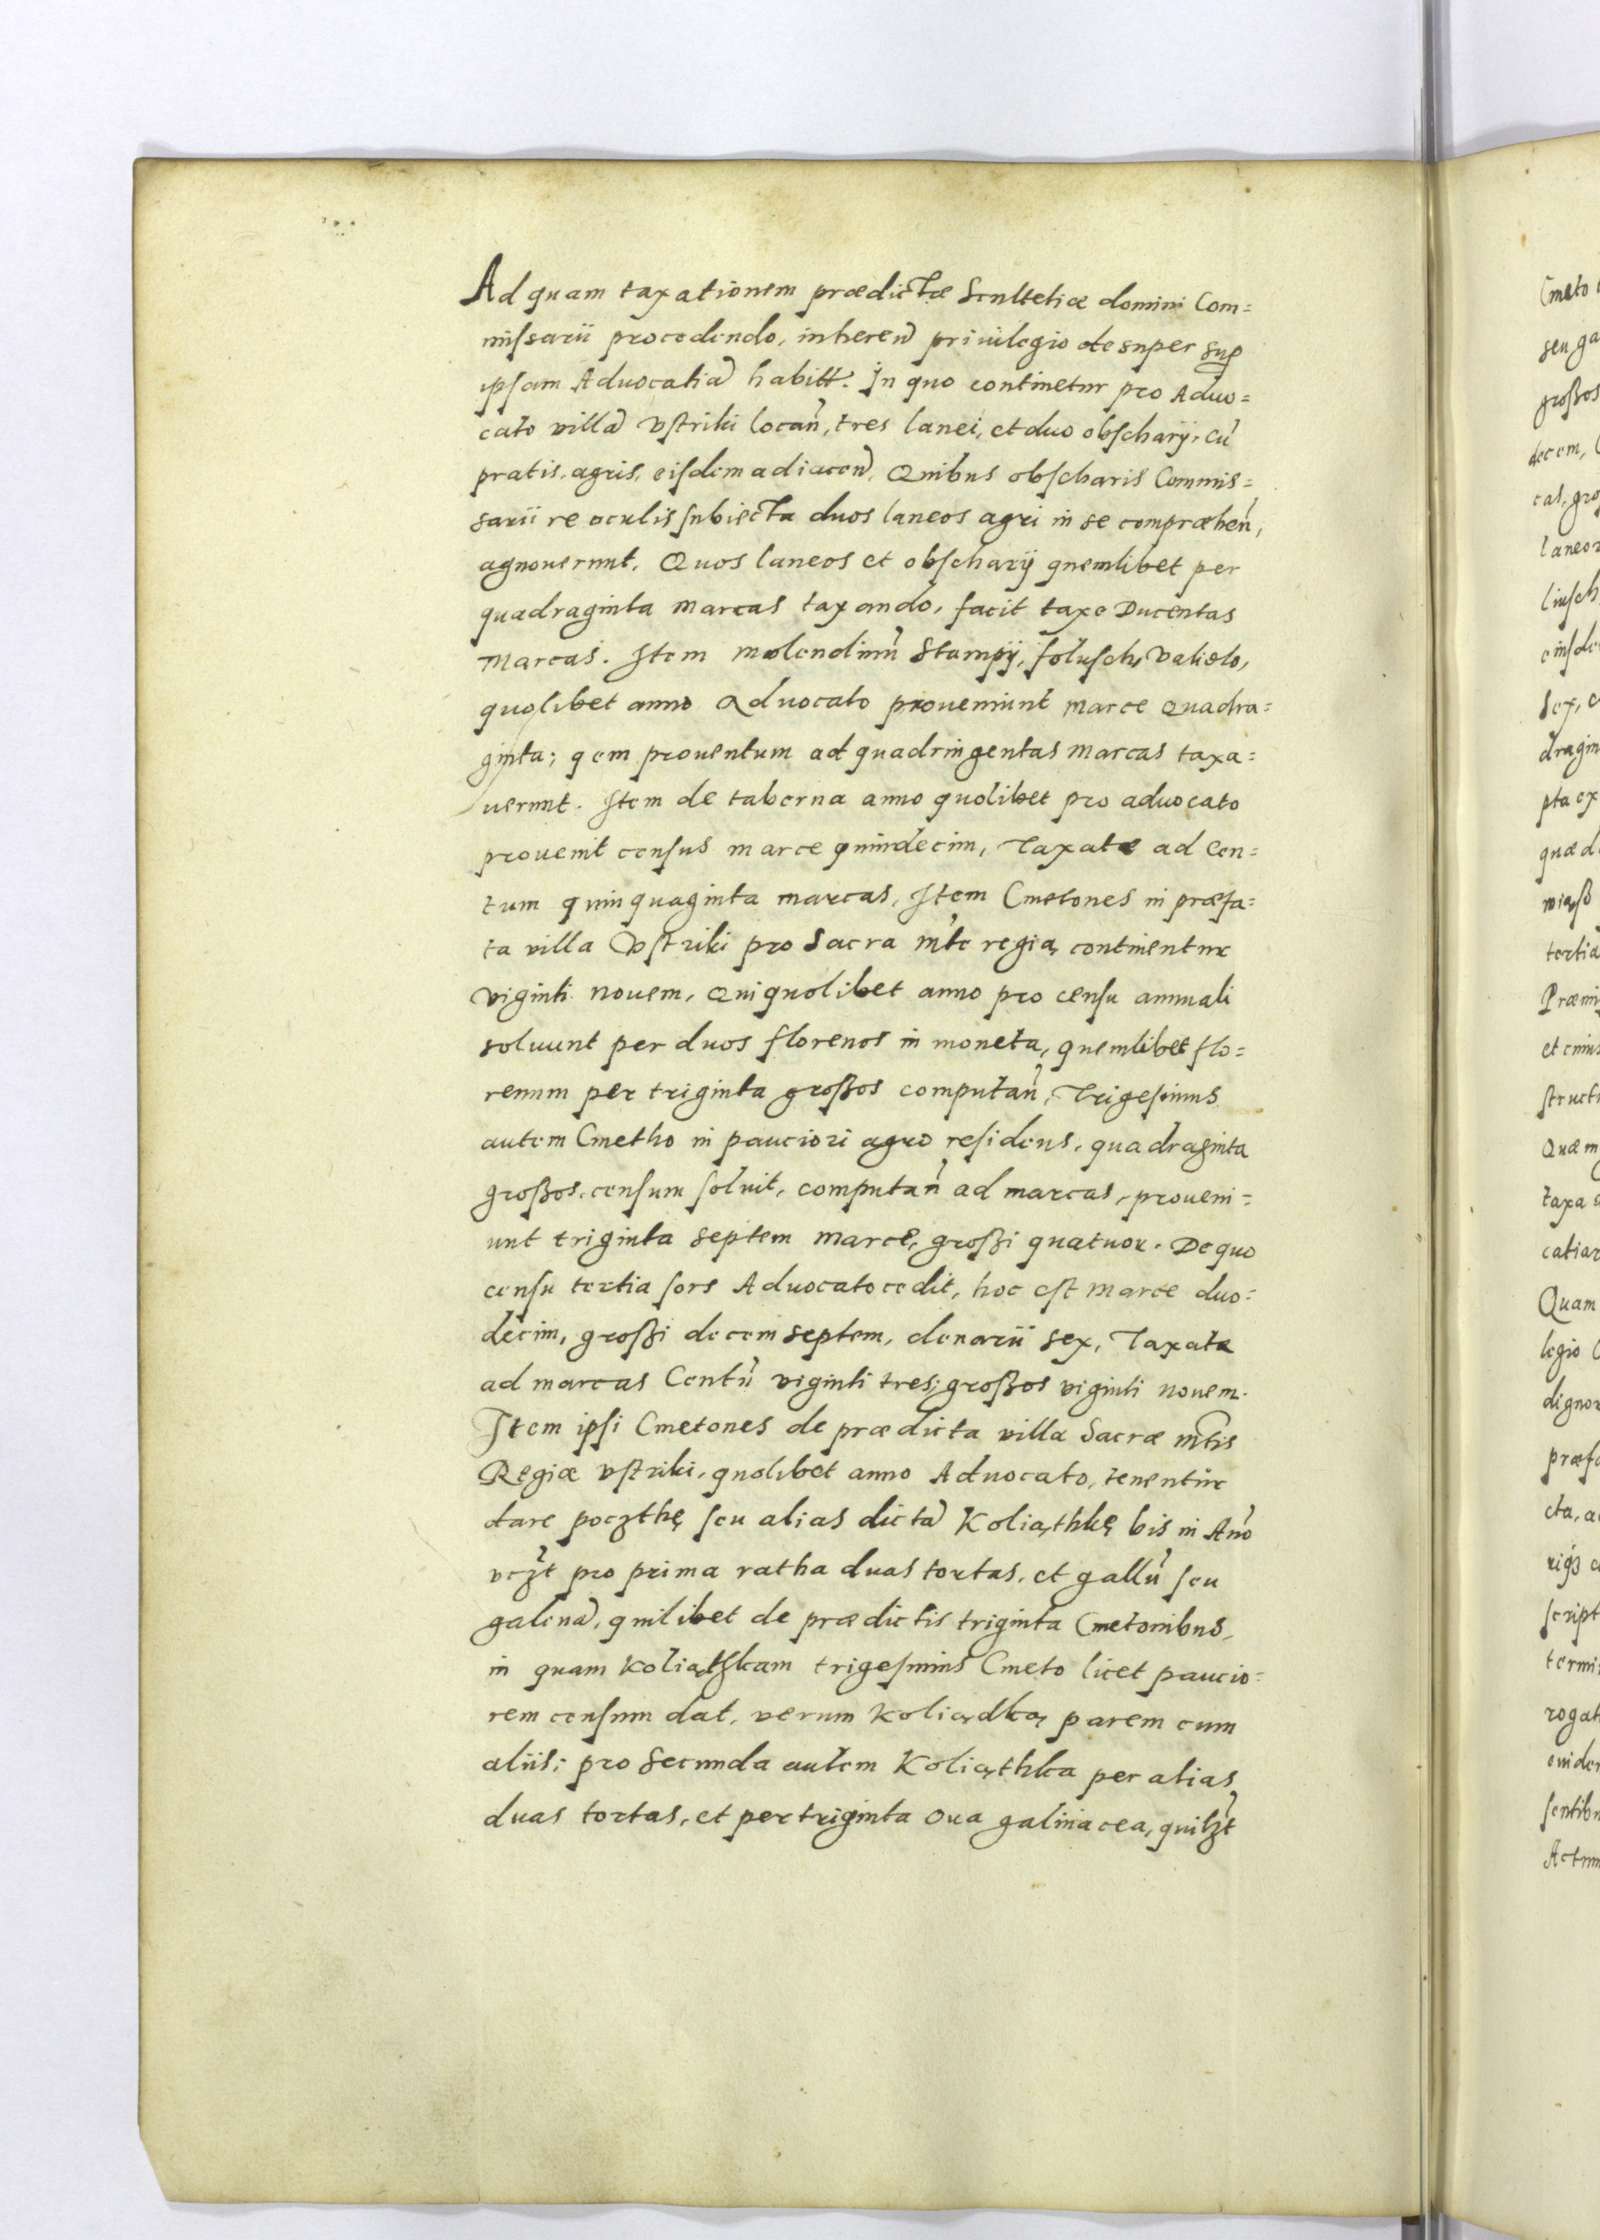 Ad quam taxationem prædictæ Scultetiæ domini Com=
missarii procedendo, inheren privilegio desuper sup
ipsam Advocatia habitt. In quo continetur pro Advo=
cato villa Vstriki locan, tres lanei, et duo obscharij, cu
pratis, agris, eisdem adiacen. Quibus obscharis Commis=
sarii re oculis subiecta duos laneos agri in se compræhen,
agnouerunt. Quos laneos et obscharij quemlibet per
quadraginta marcas taxando, facit taxe Ducentas
Marcas. Item molendinu Stampij, folusch, valielo,
quolibet anno Advocato proueniunt marce Quadra=
ginta; qem prouentum ad quadringentas marcas taxa=
uerunt. Item de taberna anno quolibet pro advocato
prouenit census marce quindecim, Taxate ad Cen=
tum quinquaginta marcas, Item Cmetones in præfa=
ta villa Vstriki pro Sacra mte regia continentur
viginti nouem, Qui quolibet anno pro censu annuali
soluunt per duos florenos in moneta, quemlibet flo=
renum per triginta großos computan, Trigesimus
autem Cmetho in pauciori agro residens, quadraginta
großos, censum soluit, computan ad marcas, proueni=
unt triginta septem marce, großi quatuor. De quo
censu tertia sors Advocato cedit, hoc est marce duo=
decim, großi decem septem, denarii sex, Taxate
ad marcas Centu viginti tres; großos viginti nouem.
Item ipsi Cmetones de prædicta villa Sacræ mtis
Regiæ Vstriki, quolibet anno Advocato, tenentur
dare poczthę seu alias dicta Koliąthkę bis in Ano
vczt pro prima ratha duas tortas, et gallu seu
galena, quilibet de prædictis triginta Cmetonibus,
in quam Koliątzkam trigesimus Cmeto licet paucio=
rem censum dat, verum Koliądką parem cum
aliis; pro Secunda autem Koliąthka per alias
duas tortas, et per triginta oua galinacea, quilzt